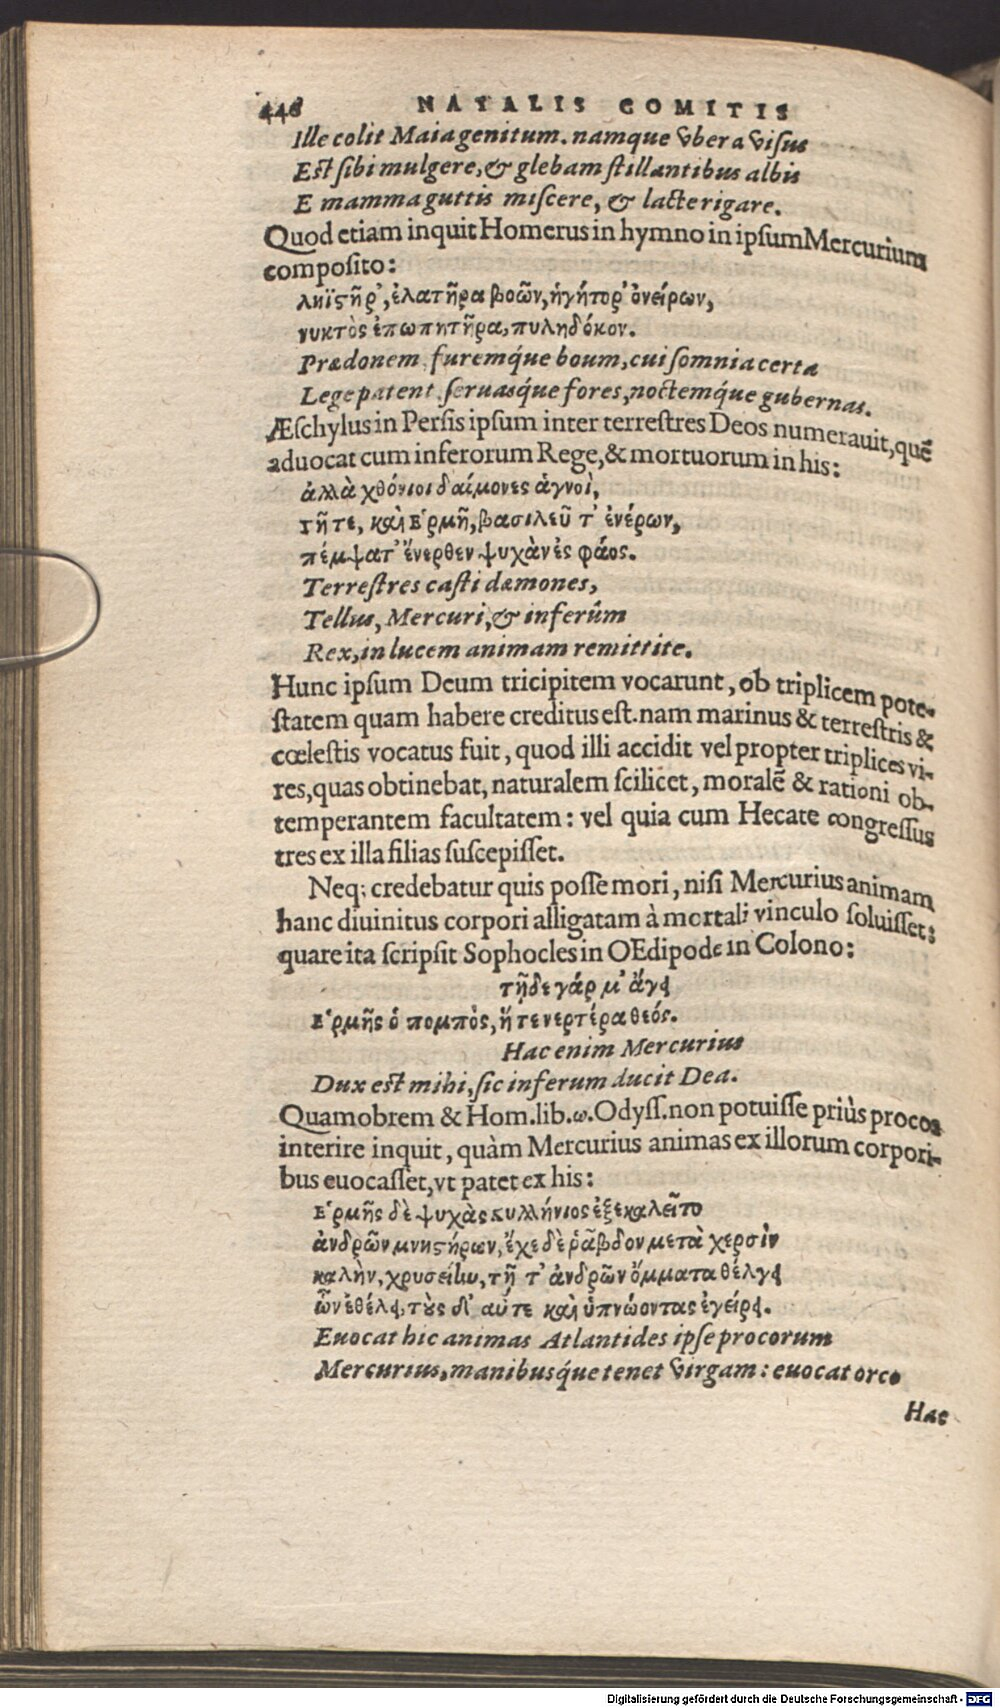 446 NATALIS COMITIS
Ille colit Maia genitum. namque vbera visus
Est sibi mulgere, & glebam stillantibus albis
E mamma guttis miscere, & lacte rigare.
Quod etiam inquit Homerus in hymno in ipsum Mercurium
composito:
ληϊϛῆρ’, ἐλατῆρα βοῶν, ἡγήτορ’ ὀνείρων,
νυκτὸς ἐπωπητῆρα, πυληδόκον.
Prædonem, furemq́ue boum, cui somnia certa
Lege patent, seruasq́ue fores, noctemq́ue gubernas.
Æschylus in Persis ipsum inter terrestres Deos numerauit, quẽ
aduocat cum inferorum Rege, & mortuorum in his:
ἀλλὰ χθόνιοι δαίμονες ἁγνοὶ,
γῆ τε, καὶ Ἑρμῆ, βασιλεῦ τ’ ἐνέρων,
πέμψατ’ ἔνερθεν ψυχὰν ἐς φάος.
Terrestres casti dæmones,
Tellus, Mercuri, & inferûm
Rex, in lucem animam remittite.
Hunc ipsum Deum tricipitem vocarunt, ob triplicem pote-
statem quam habere creditus est. nam marinus & terrestris &
cœlestis vocatus fuit, quod illi accidit vel propter triplices vi-
res, quas obtinebat, naturalem scilicet, moralẽ & rationi ob-
temperantem facultatem: vel quia cum Hecate congressus
tres ex illa filias suscepisset.
Neq; credebatur quis posse mori, nisi Mercurius animam
hanc diuinitus corpori alligatam à mortali vinculo soluisset:
quare ita scripsit Sophocles in OEdipode in Colono:
τῇδε γάρ μ’ ἄγει
Ἑρμῆς ὁ πομπὸς, ἥ τε νερτέρα θεός.
Hac enim Mercurius
Dux est mihi, sic inferum ducit Dea.
Quamobrem & Hom. lib. ω. Odyss. non potuisse priùs procos
interire inquit, quàm Mercurius animas ex illorum corpori-
bus euocasset, vt patet ex his:
Ἑρμῆς δὲ ψυχὰς κυλλήνιος ἐξεκαλεῖτο
ἀνδρῶν μνηϛήρων, ἔχε δὲ ῥάβδον μετὰ χερσὶν
καλὴν, χρυσείην, τῇ τ’ ἀνδρῶν ὄμματα θέλγει
ὧν ἐθέλει, τοὺς δ’ αὖτε καὶ ὑπνώοντας ἐγείρει.
Euocat hic animas Atlantides ipse procorum
Mercurius, manibusq́ue tenet virgam: euocat orco
Hac
Digitalisierung gefördert durch die Deutsche Forschungsgemeinschaft - DFG